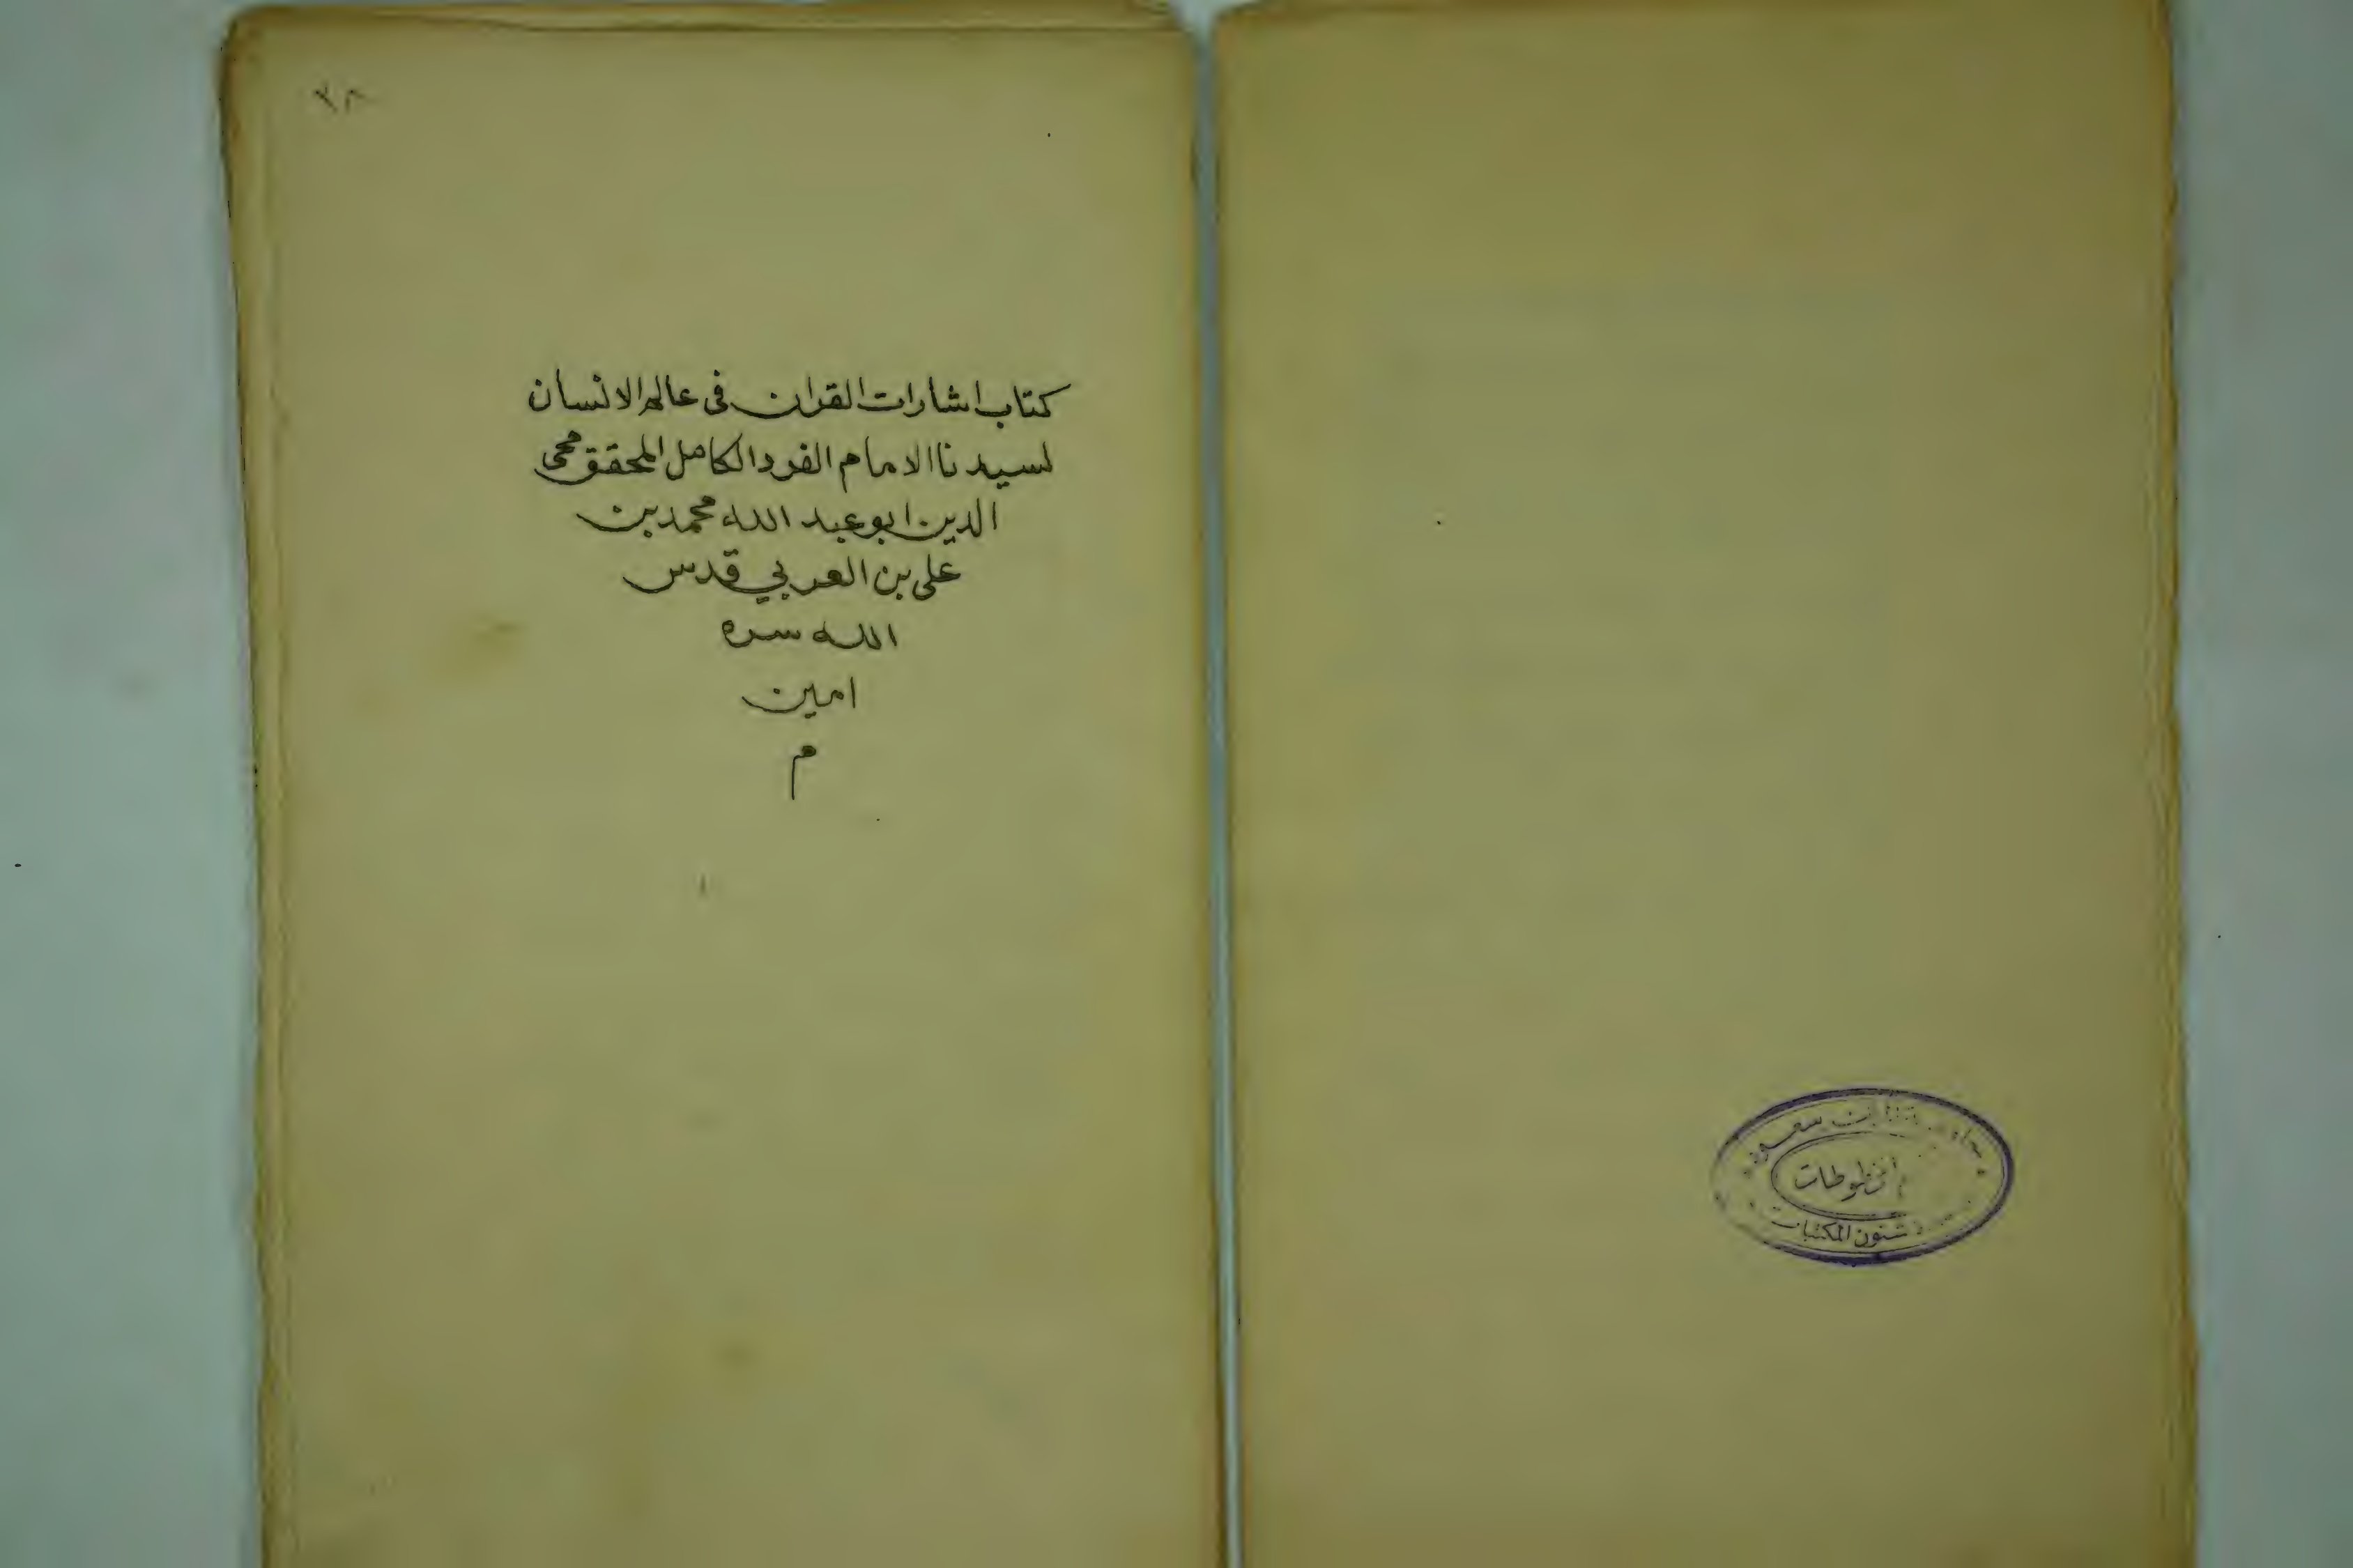 ٣٨
كتاب اشارات القران فى عالم الانسان
لسيدنا الامام الفرد الكامل المحقق محى
الدين ابو عبد الله محمد بن
على بن العربي قدس
الله سره
امين
م
سعود
المخطوطات
شئون المكتبات